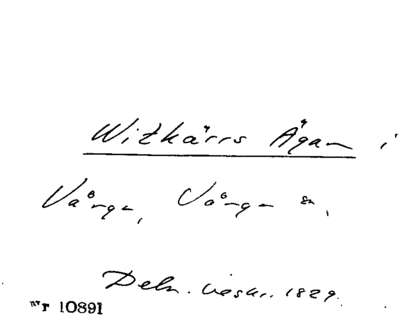 Witkärrs Ägan i
Vånga, Vånga sn,
Deln. beskr. 1829.
Nr 10891